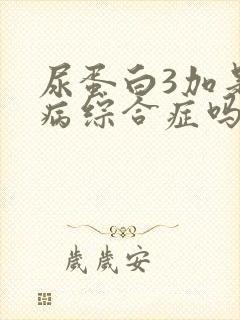 尿蛋白3加是
病综合症吗
歲歲安